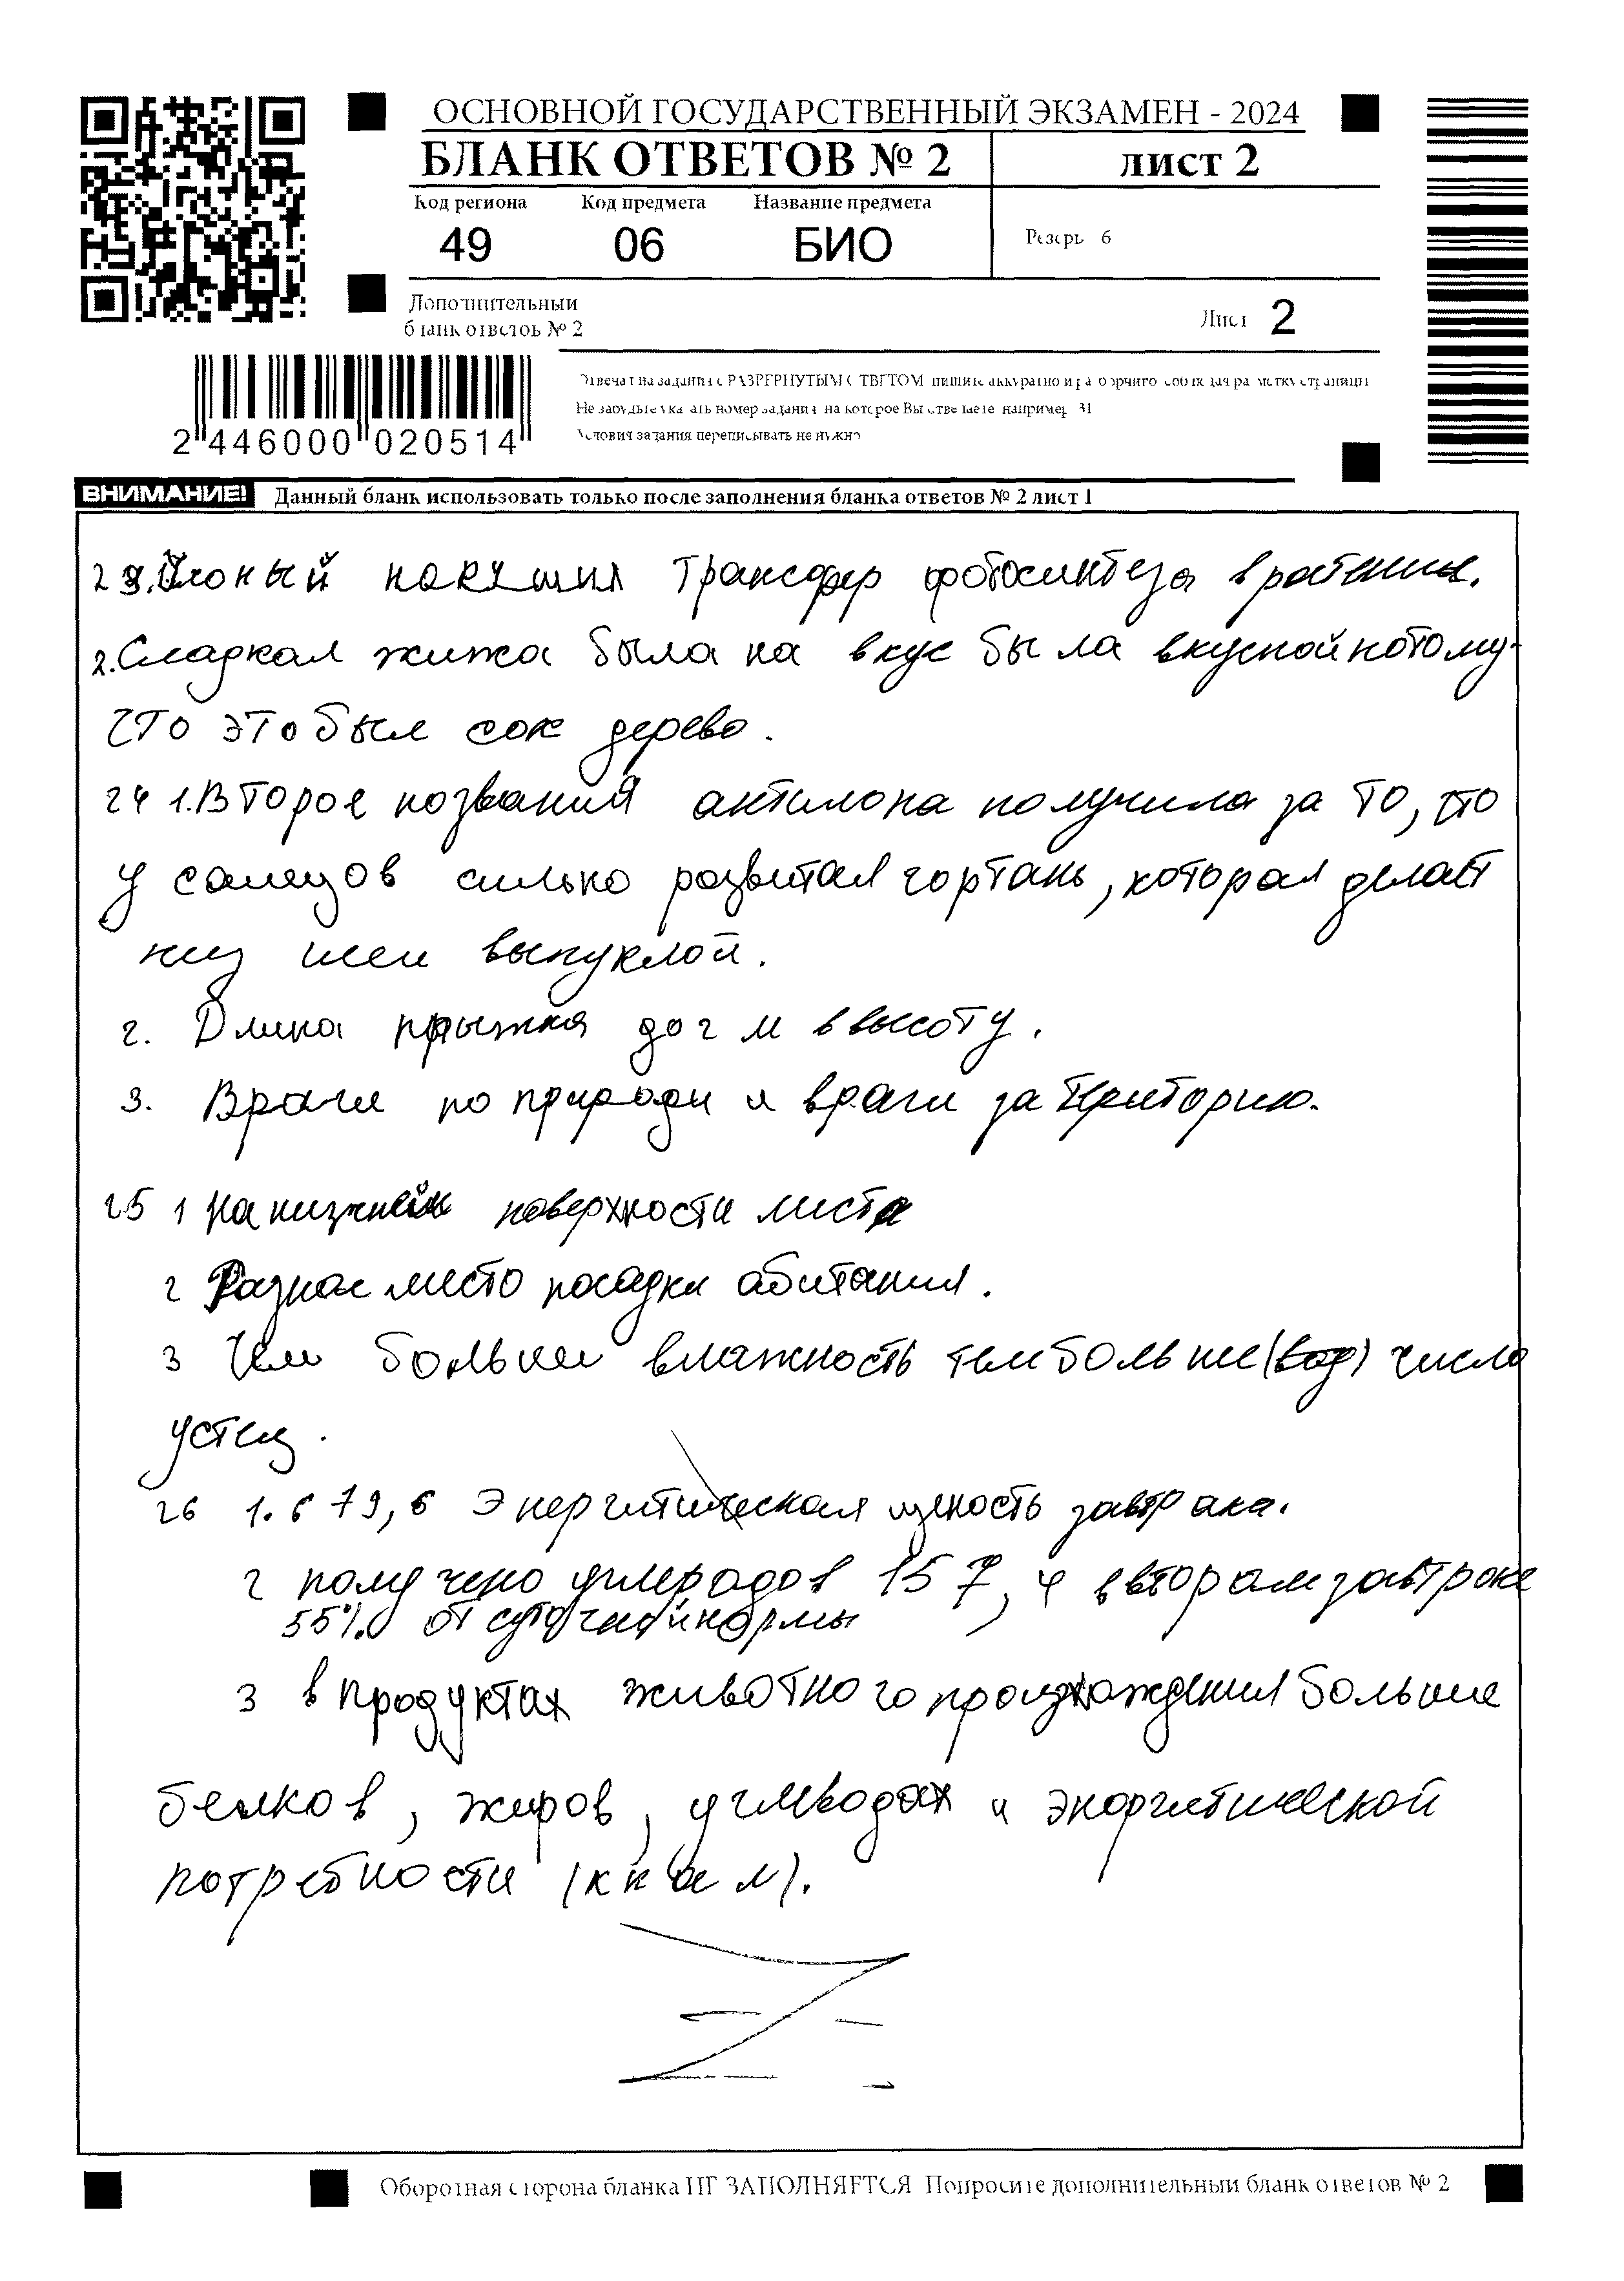 ОСНОВНОЙ ГОСУДАРСТВЕННЫЙ ЭКЗАМЕН - 2024
БЛАНК ОТВЕТОВ № 2 лист 2
Код региона Код предмета Название предмета
49 06 БИО Резерв 6
Дополнительный
бланк ответов № 2
Лист 2
Отвечая на задания с РАЗВЕРНУТЫМ ОТВЕТОМ пишите аккуратно и разборчиво соблюдая разметку страницы
Не забудьте указать номер задания на которое Вы отвечаете например 31
Условия задания переписывать не нужно
2 446000 020514
ВНИМАНИЕ! Данный бланк использовать только после заполнения бланка ответов № 2 лист 1
трансфер фотосинтеза в
2. Сладкая жижа была на вкус была вкусной потому-
что это был сок дерево.
24 1. Второе названия антилопа получила за то, что
у самцов сильно развитая гортань, которая делает
низ шеи выпуклой.
2. Длина прыжка до 2 м в высоту.
3. Враги по природи и враги за територию.
25 1 На нижней поверхности листа
2 Разное место посадки абитания.
3 Чем больше влажность тем больше (вод) число
устиц.
26 1. 679,6 Энергитическая ценость завтрака.
2 получено углеродов 157,4 в втором завтраке
55% от суточной нормы
3 в продуктах животного происхождения больше
белков, жиров, углеводах и энергитической
потребности (ккал).
Z
Оборотная сторона бланка НЕ ЗАПОЛНЯЕТСЯ Попросите дополнительный бланк ответов № 2